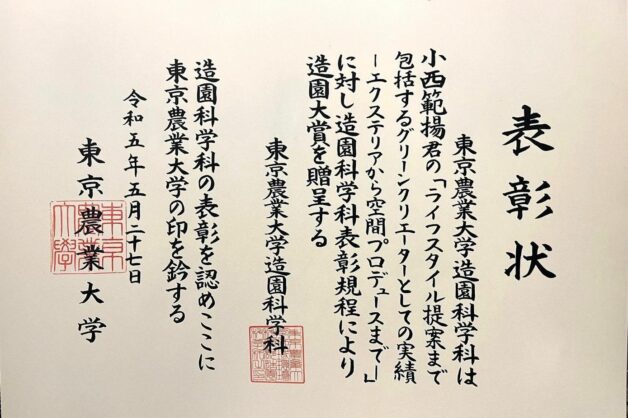 表彰状
東京農業大学造園科学科は
小西範揚君の「ライフスタイル提案まで
包括するグリーンクリエーターとしての実績
ーエクステリアから空間プロデュースまでー」
に対し造園科学科表彰規程により
造園大賞を贈呈する
東京農業大学造園科学科
造園科学科の表彰を認めここに
東京農業大学の印を鈐する
令和五年五月二十七日
東京農業大学